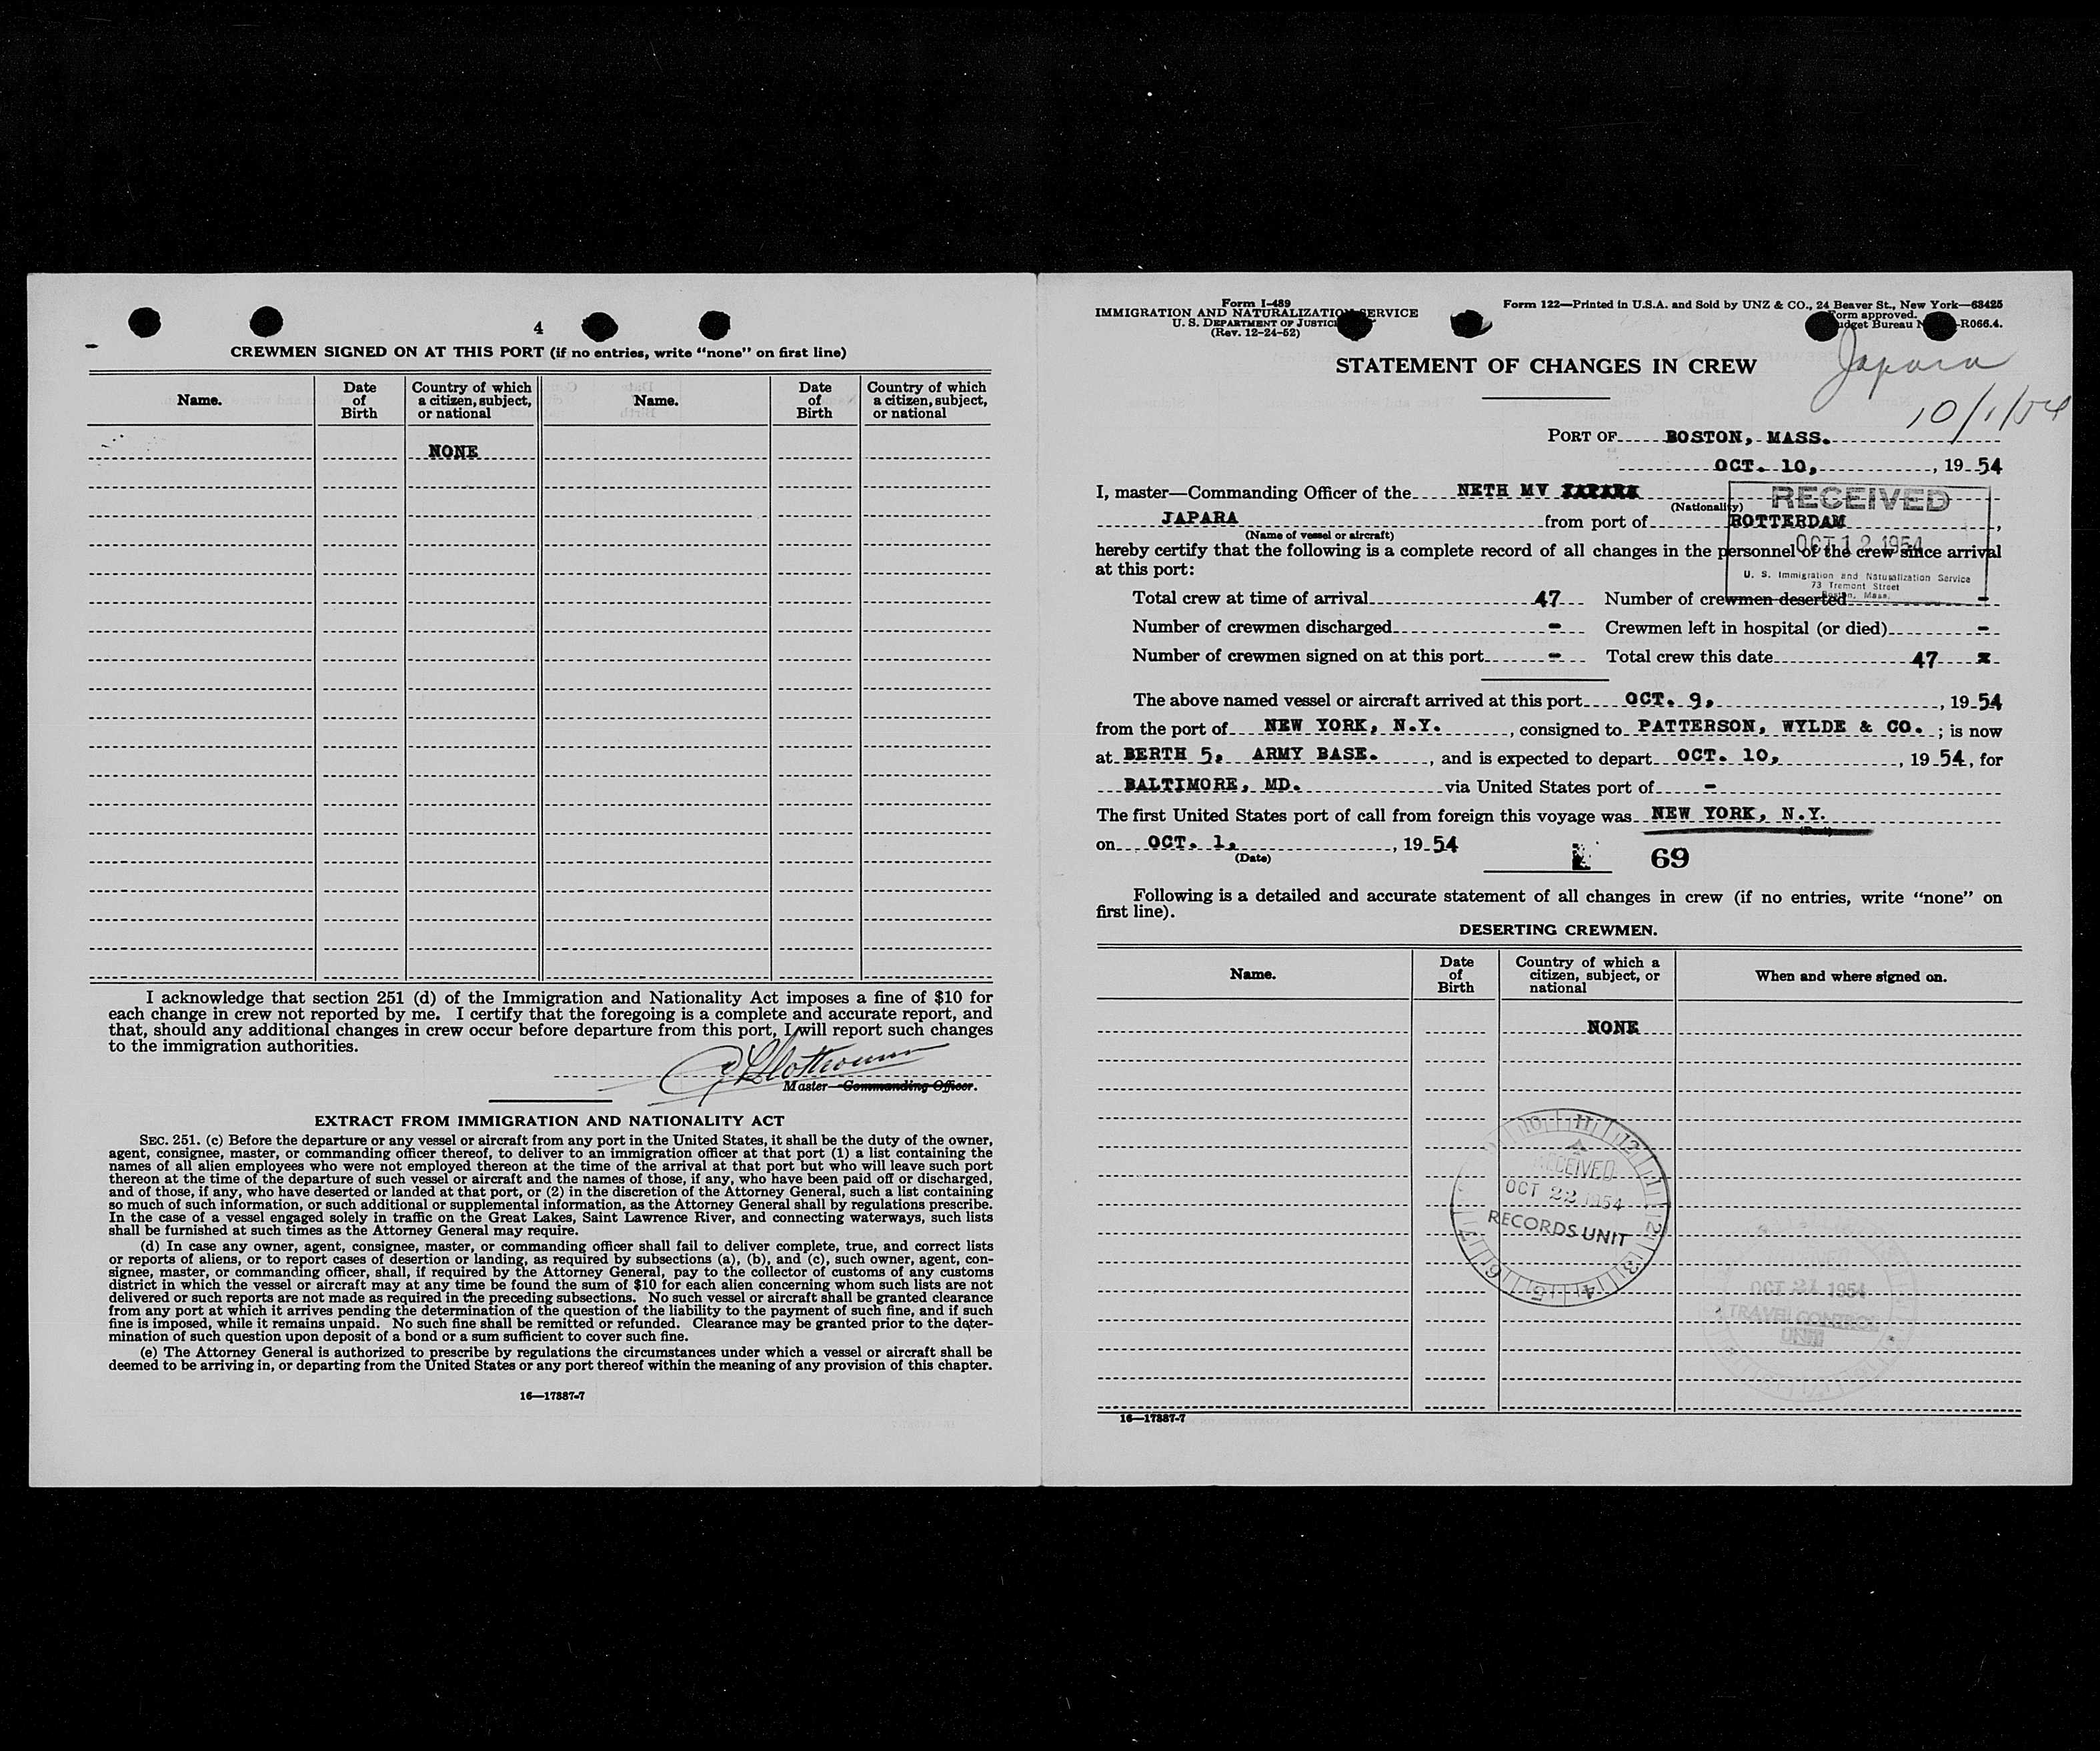 4
CREWMEN SIGNED ON AT THIS PORT (if no entries, write “none” on first line)
Name. Date of Birth Country of which a citizen, subject, or national Name. Date of Birth Country of which a citizen, subject, or national
NONE
I acknowledge that section 251 (d) of the Immigration and Nationality Act imposes a fine of $10 for
each change in crew not reported by me. I certify that the foregoing is a complete and accurate report, and
that, should any additional changes in crew occur before departure from this port, I will report such changes
to the immigration authorities.
Master—Commanding Officer.
EXTRACT FROM IMMIGRATION AND NATIONALITY ACT
SEC. 251. (c) Before the departure or any vessel or aircraft from any port in the United States, it shall be the duty of the owner,
agent, consignee, master, or commanding officer thereof, to deliver to an immigration officer at that port (1) a list containing the
names of all alien employees who were not employed thereon at the time of the arrival at that port but who will leave such port
thereon at the time of the departure of such vessel or aircraft and the names of those, if any, who have been paid off or discharged,
and of those, if any, who have deserted or landed at that port, or (2) in the discretion of the Attorney General, such a list containing
so much of such information, or such additional or supplemental information, as the Attorney General shall by regulations prescribe.
In the case of a vessel engaged solely in traffic on the Great Lakes, Saint Lawrence River, and connecting waterways, such lists
shall be furnished at such times as the Attorney General may require.
(d) In case any owner, agent, consignee, master, or commanding officer shall fail to deliver complete, true, and correct lists
or reports of aliens, or to report cases of desertion or landing, as required by subsections (a), (b), and (c), such owner, agent, con-
signee, master, or commanding officer, shall, if required by the Attorney General, pay to the collector of customs of any customs
district in which the vessel or aircraft may at any time be found the sum of $10 for each alien concerning whom such lists are not
delivered or such reports are not made as required in the preceding subsections. No such vessel or aircraft shall be granted clearance
from any port at which it arrives pending the determination of the question of the liability to the payment of such fine, and if such
fine is imposed, while it remains unpaid. No such fine shall be remitted or refunded. Clearance may be granted prior to the deter-
mination of such question upon deposit of a bond or a sum sufficient to cover such fine.
(e) The Attorney General is authorized to prescribe by regulations the circumstances under which a vessel or aircraft shall be
deemed to be arriving in, or departing from the United States or any port thereof within the meaning of any provision of this chapter.
16—17887-7
Form I-489
IMMIGRATION AND NATURALIZATION SERVICE
U. S. DEPARTMENT OF JUSTICE
(Rev. 12-24-52)
Form 122—Printed in U.S.A. and Sold by UNZ & CO., 24 Beaver St., New York—68425
Form approved.
Budget Bureau N -R066.4.
STATEMENT OF CHANGES IN CREW
Japara
10/1/54
PORT OF BOSTON, MASS.
OCT. 10, , 19 54
I, master—Commanding Officer of the NETH MV
(Nationality)
JAPARA from port of ROTTERDAM ,
(Name of vessel or aircraft)
hereby certify that the following is a complete record of all changes in the personnel of the crew since arrival
at this port:
RECEIVED
OCT 12 1954
U. S. Immigration and Naturalization Service
73 Tremont Street
Boston, Mass.
Total crew at time of arrival 47 Number of crewmen deserted -
Number of crewmen discharged - Crewmen left in hospital (or died) -
Number of crewmen signed on at this port - Total crew this date 47 x
The above named vessel or aircraft arrived at this port OCT. 9, , 19 54
from the port of NEW YORK, N.Y. , consigned to PATTERSON, WYLDE & CO. ; is now
at BERTH 5, ARMY BASE. , and is expected to depart OCT. 10, , 19 54, for
BALTIMORE, MD. via United States port of -
The first United States port of call from foreign this voyage was NEW YORK, N.Y.
(Port)
on OCT. 1, , 19 54
(Date)
69
Following is a detailed and accurate statement of all changes in crew (if no entries, write “none” on
first line).
DESERTING CREWMEN.
Name. Date of Birth Country of which a citizen, subject, or national When and where signed on.
NONE
10 11 12 1 2 3 4 5 6 7
RECEIVED
OCT 22 1954
RECORDS UNIT
OCT 21 1954
TRAVEL CONTROL
UNIT
16—17887-7